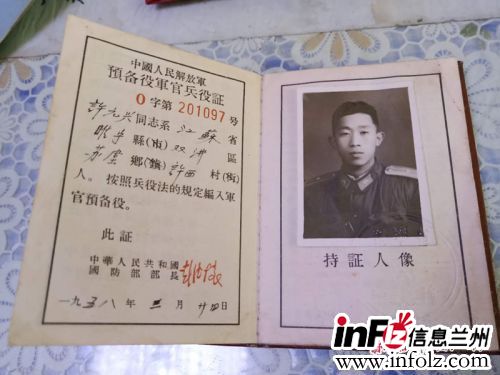 中國人民解放軍
預备役軍官兵役証
0字第 201097 号
許九兴同志系 江蘇 省
縣(市) 双溝 區
鄉(鎮) 許西 村(街)
人。按照兵役法的規定編入軍
官預备役。
此証
中華人民共和國
國防部部長 彭德懷
一九五八年三月廿四日
持証人像
infLZ信息兰州
www.infolz.com